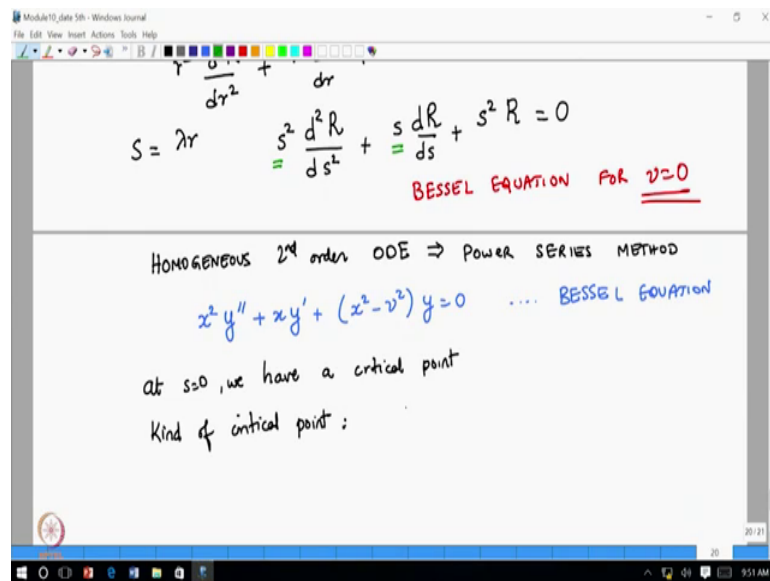 Module10_date 5th - Windows Journal
File Edit View Insert Actions Tools Help
dr² + dr
S = λr s² d²R/ds² + s dR/ds + s² R = 0
BESSEL EQUATION FOR ν=0
HOMOGENEOUS 2nd order ODE ⇒ POWER SERIES METHOD
x² y'' + x y' + (x² - ν²) y = 0 .... BESSEL EQUATION
at s=0, we have a critical point
Kind of critical point :
20/21
20
9:51 AM